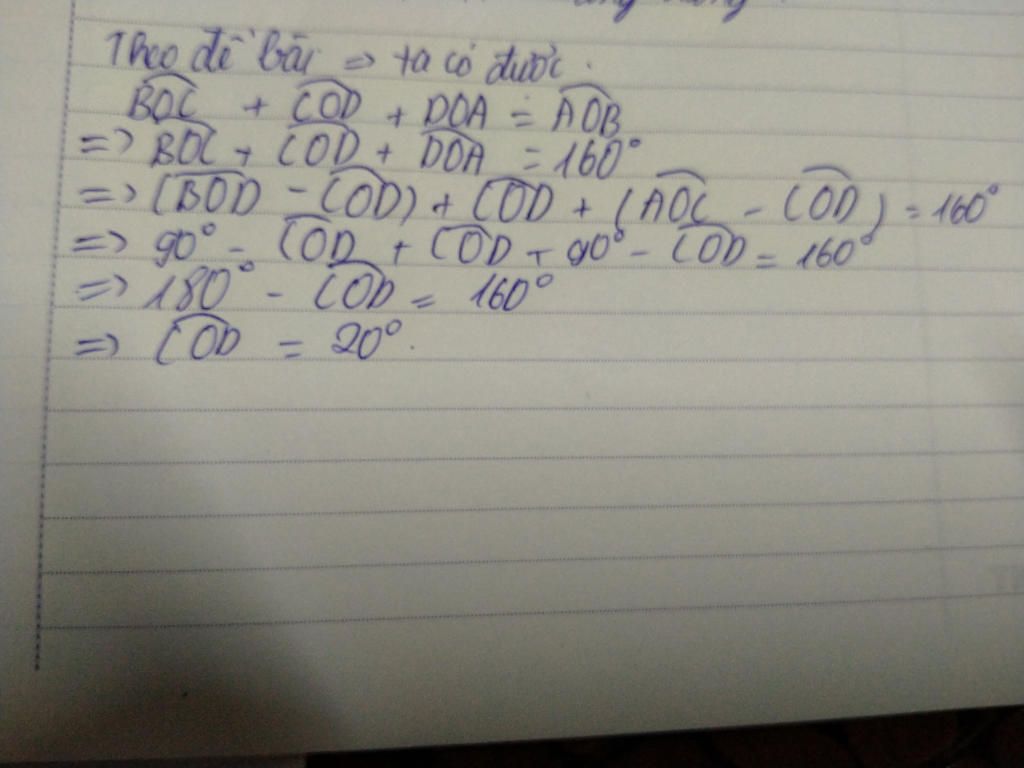 Theo đề bài => ta có được.
BOC + COD + DOA = AOB
=> BOC + COD + DOA = 160°
=> (BOD - COD) + COD + (AOC - COD) = 160°
=> 90° - COD + COD + 90° - COD = 160°
=> 180° - COD = 160°
=> COD = 20°.